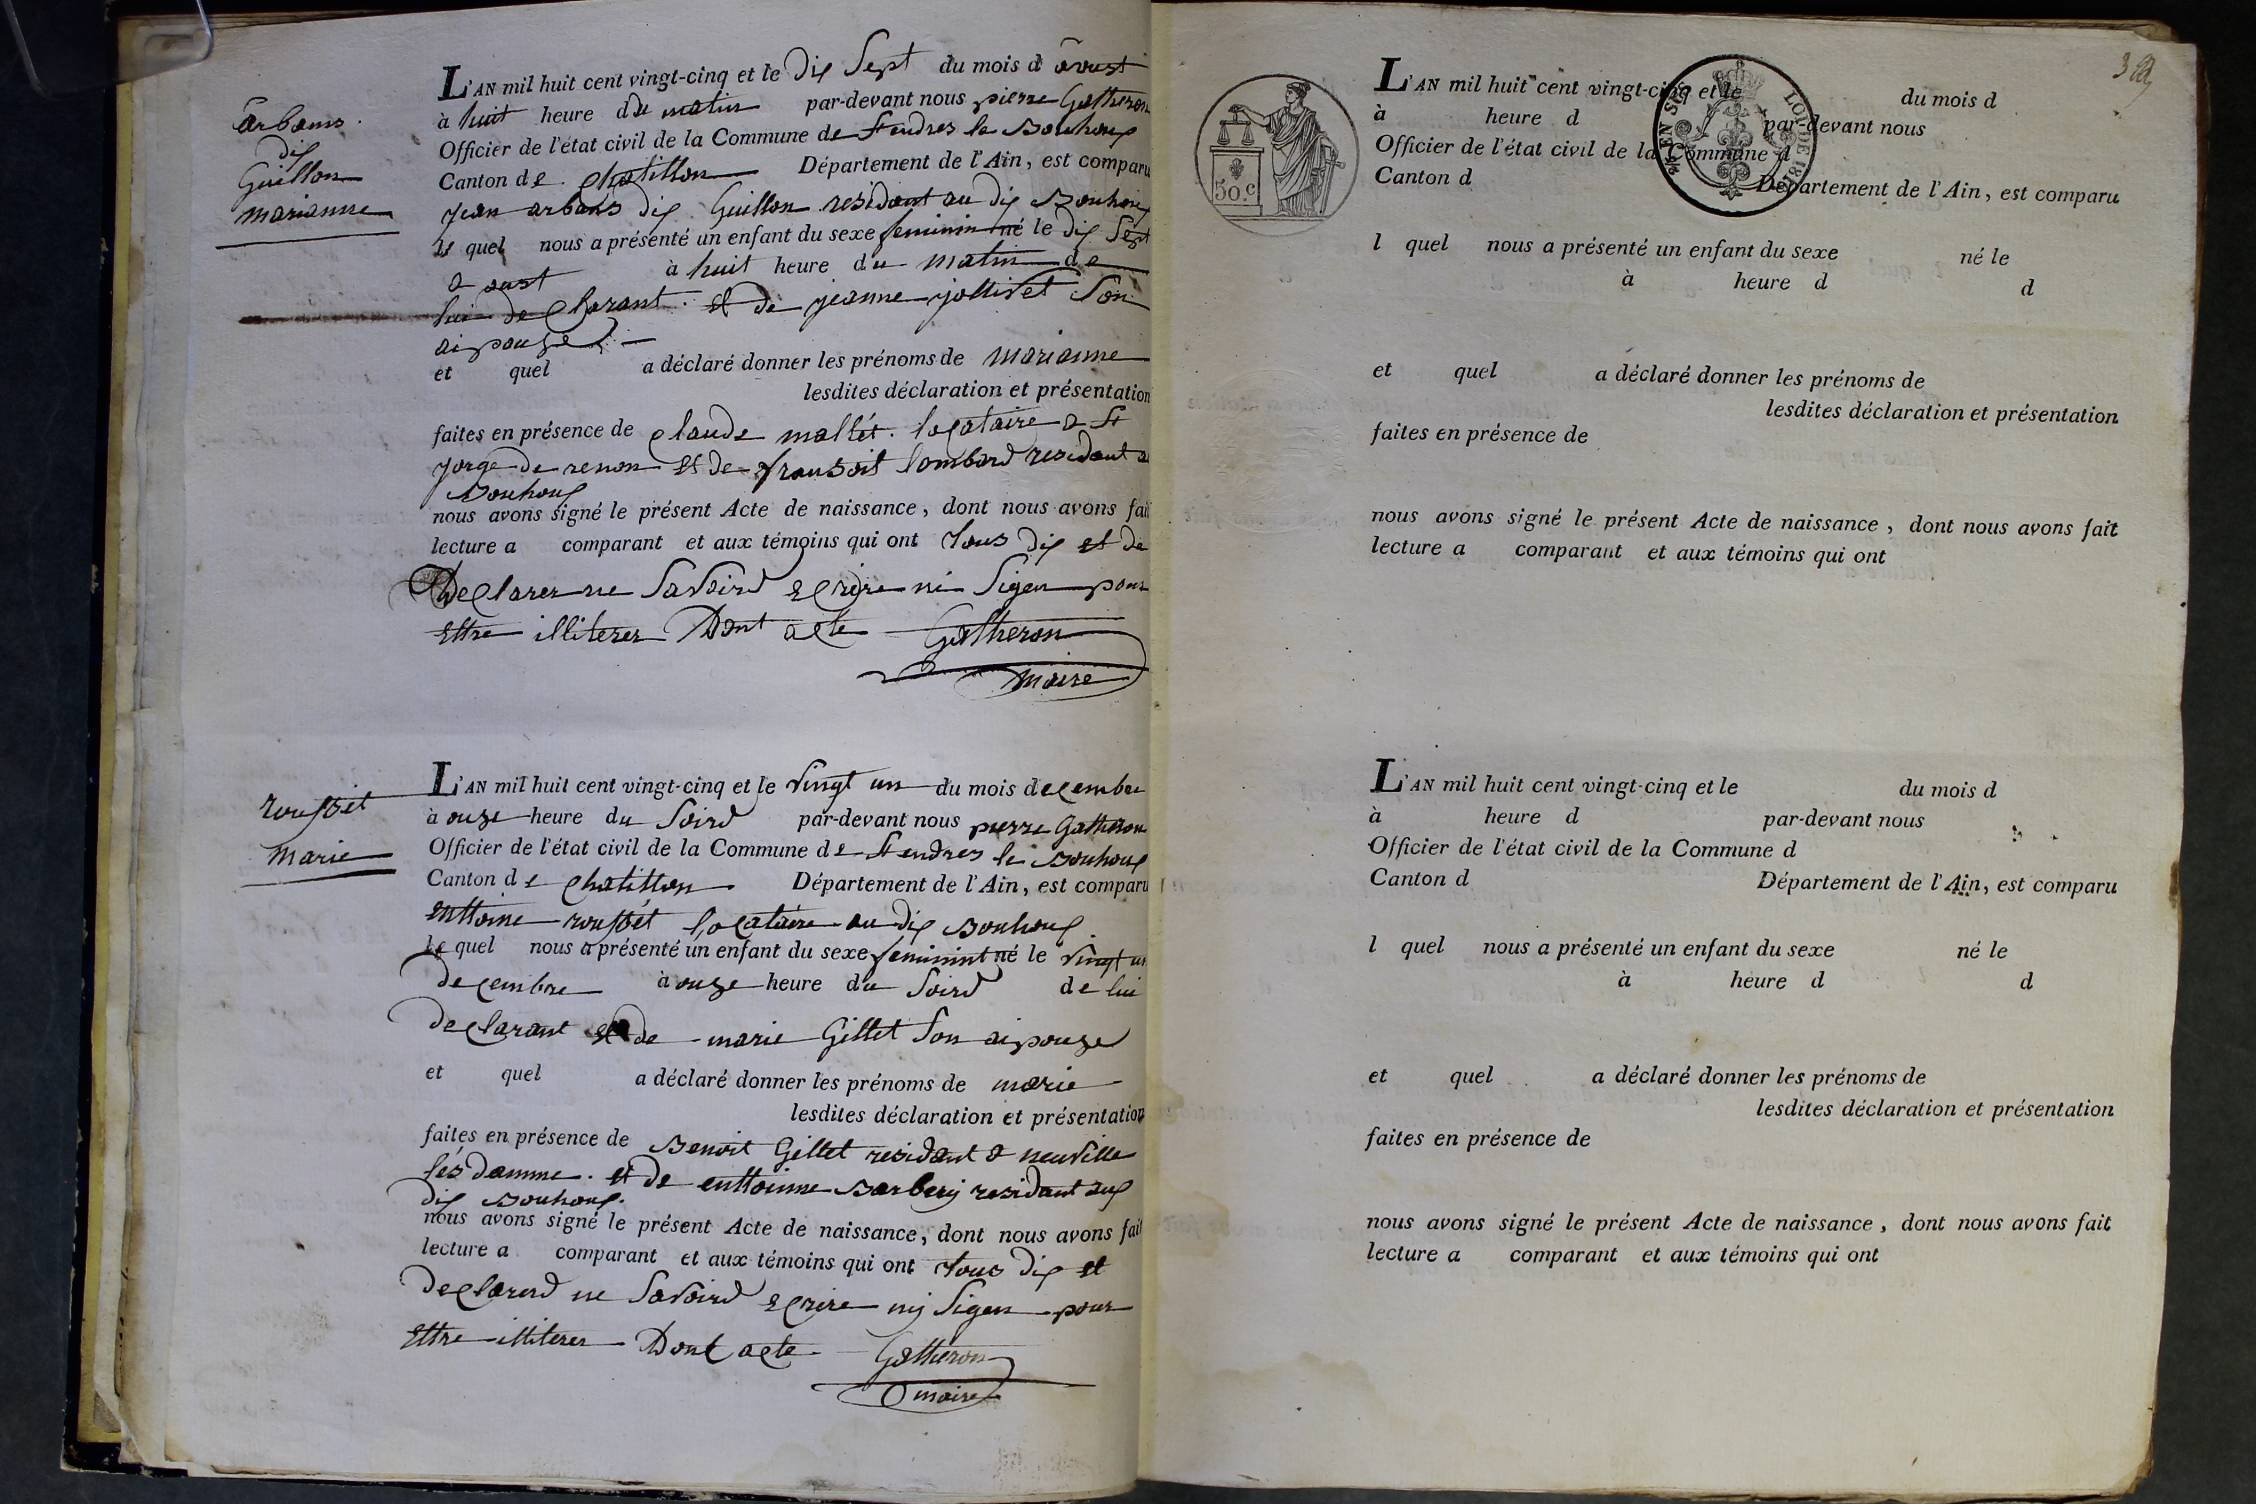 arbans
dix
Guillon
marianne
L'AN mil huit cent vingt-cinq et le dix Sept du mois d aoust
à huit heure du matin par-devant nous pierre Gatheron
Officier de l'état civil de la Commune de St andres le Bouhoux
Canton de chatillon Département de l'Ain, est comparu
jean arbans dix Guillon residant au dix Bouhoux
le quel nous a présenté un enfant du sexe feminin né le dix Sept
aoust à huit heure du matin de
lui declarant et de jeanne jollivet Son
aipouze
et quel a déclaré donner les prénoms de marianne
lesdites déclaration et présentation
faites en présence de claude mallet locataire a St
jorge de renon et de fransoit lombard residant a
Bouhoux
nous avons signé le présent Acte de naissance, dont nous avons fait
lecture a comparant et aux témoins qui ont tous dix et de
Declarer ne Savoird ecrire ni Signer pour
Ettre illiterer Dont acte Gatheron
maire
rousset
marie
L'AN mil huit cent vingt-cinq et le vingt un du mois decembre
à onze heure du Soird par-devant nous pierre Gatheron
Officier de l'état civil de la Commune de St andres le Bouhoux
Canton de chatillon Département de l'Ain, est comparu
enttoine rousset locataire au dix Bouhoux
le quel nous a présenté un enfant du sexe feminint né le vingt un
decembre à onze heure du Soird de lui
declarant et de marie Gillet Son aipouze
et quel a déclaré donner les prénoms de marie
lesdites déclaration et présentation
faites en présence de Benoit Gillet residant a neuville
les damme et de enttoinne Barbery residant aux
dix Bouhoux
nous avons signé le présent Acte de naissance, dont nous avons fait
lecture a comparant et aux témoins qui ont tous dix et
declarerd ne Savoird ecrire ny Signer pour
Ettre illiterer Dont acte Gatheron
maire
50.c
L'AN mil huit cent vingt-cinq et le du mois d
à heure d par-devant nous
Officier de l'état civil de la Commune d
Canton d Département de l'Ain, est comparu
l quel nous a présenté un enfant du sexe né le
à heure d d
et quel a déclaré donner les prénoms de
lesdites déclaration et présentation
faites en présence de
nous avons signé le présent Acte de naissance, dont nous avons fait
lecture a comparant et aux témoins qui ont
L'AN mil huit cent vingt-cinq et le du mois d
à heure d par-devant nous
Officier de l'état civil de la Commune d
Canton d Département de l'Ain, est comparu
l quel nous a présenté un enfant du sexe né le
à heure d d
et quel a déclaré donner les prénoms de
lesdites déclaration et présentation
faites en présence de
nous avons signé le présent Acte de naissance, dont nous avons fait
lecture a comparant et aux témoins qui ont